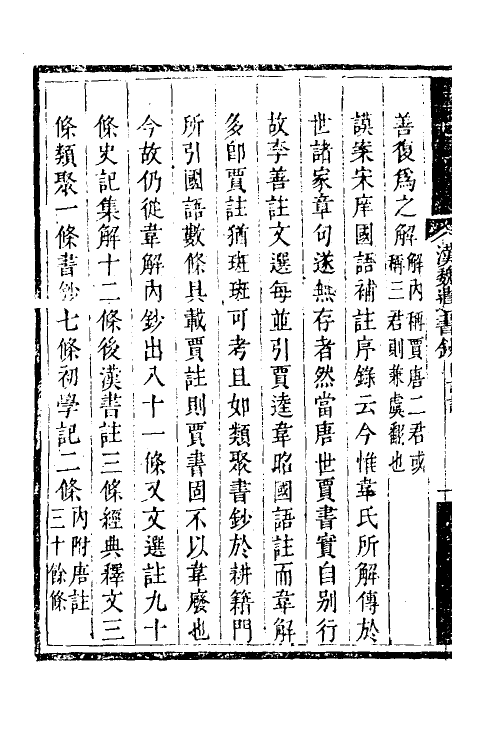 善復爲之解解内稱賈唐二君或稱三君則兼虞翻也
謨案宋庠國語補註序錄云今惟韋氏所解傳於
世諸家章句遂無存者然當唐世賈書實自别行
故李善註文選每並引賈逵韋昭國語註而韋解
多卽賈註猶班班可考且如類聚書鈔於耕籍門
所引國語數條具載賈註則賈書固不以韋廢也
今故仍從韋解内鈔出八十一條又文選註九十
條史記集解十二條後漢書註三條經典釋文三
條類聚一條書鈔七條初學記二條内附唐註三十餘條
漢魏遺書鈔